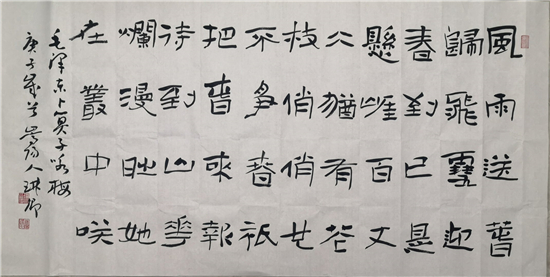 風雨送春
歸飛雪迎
春到已是
懸崖百丈
仌猶有花
枝俏俏也
不爭春祇
把春來報
待到山華
爛漫時她
在叢中咲
毛澤東卜算子咏梅
庚子歲首 人